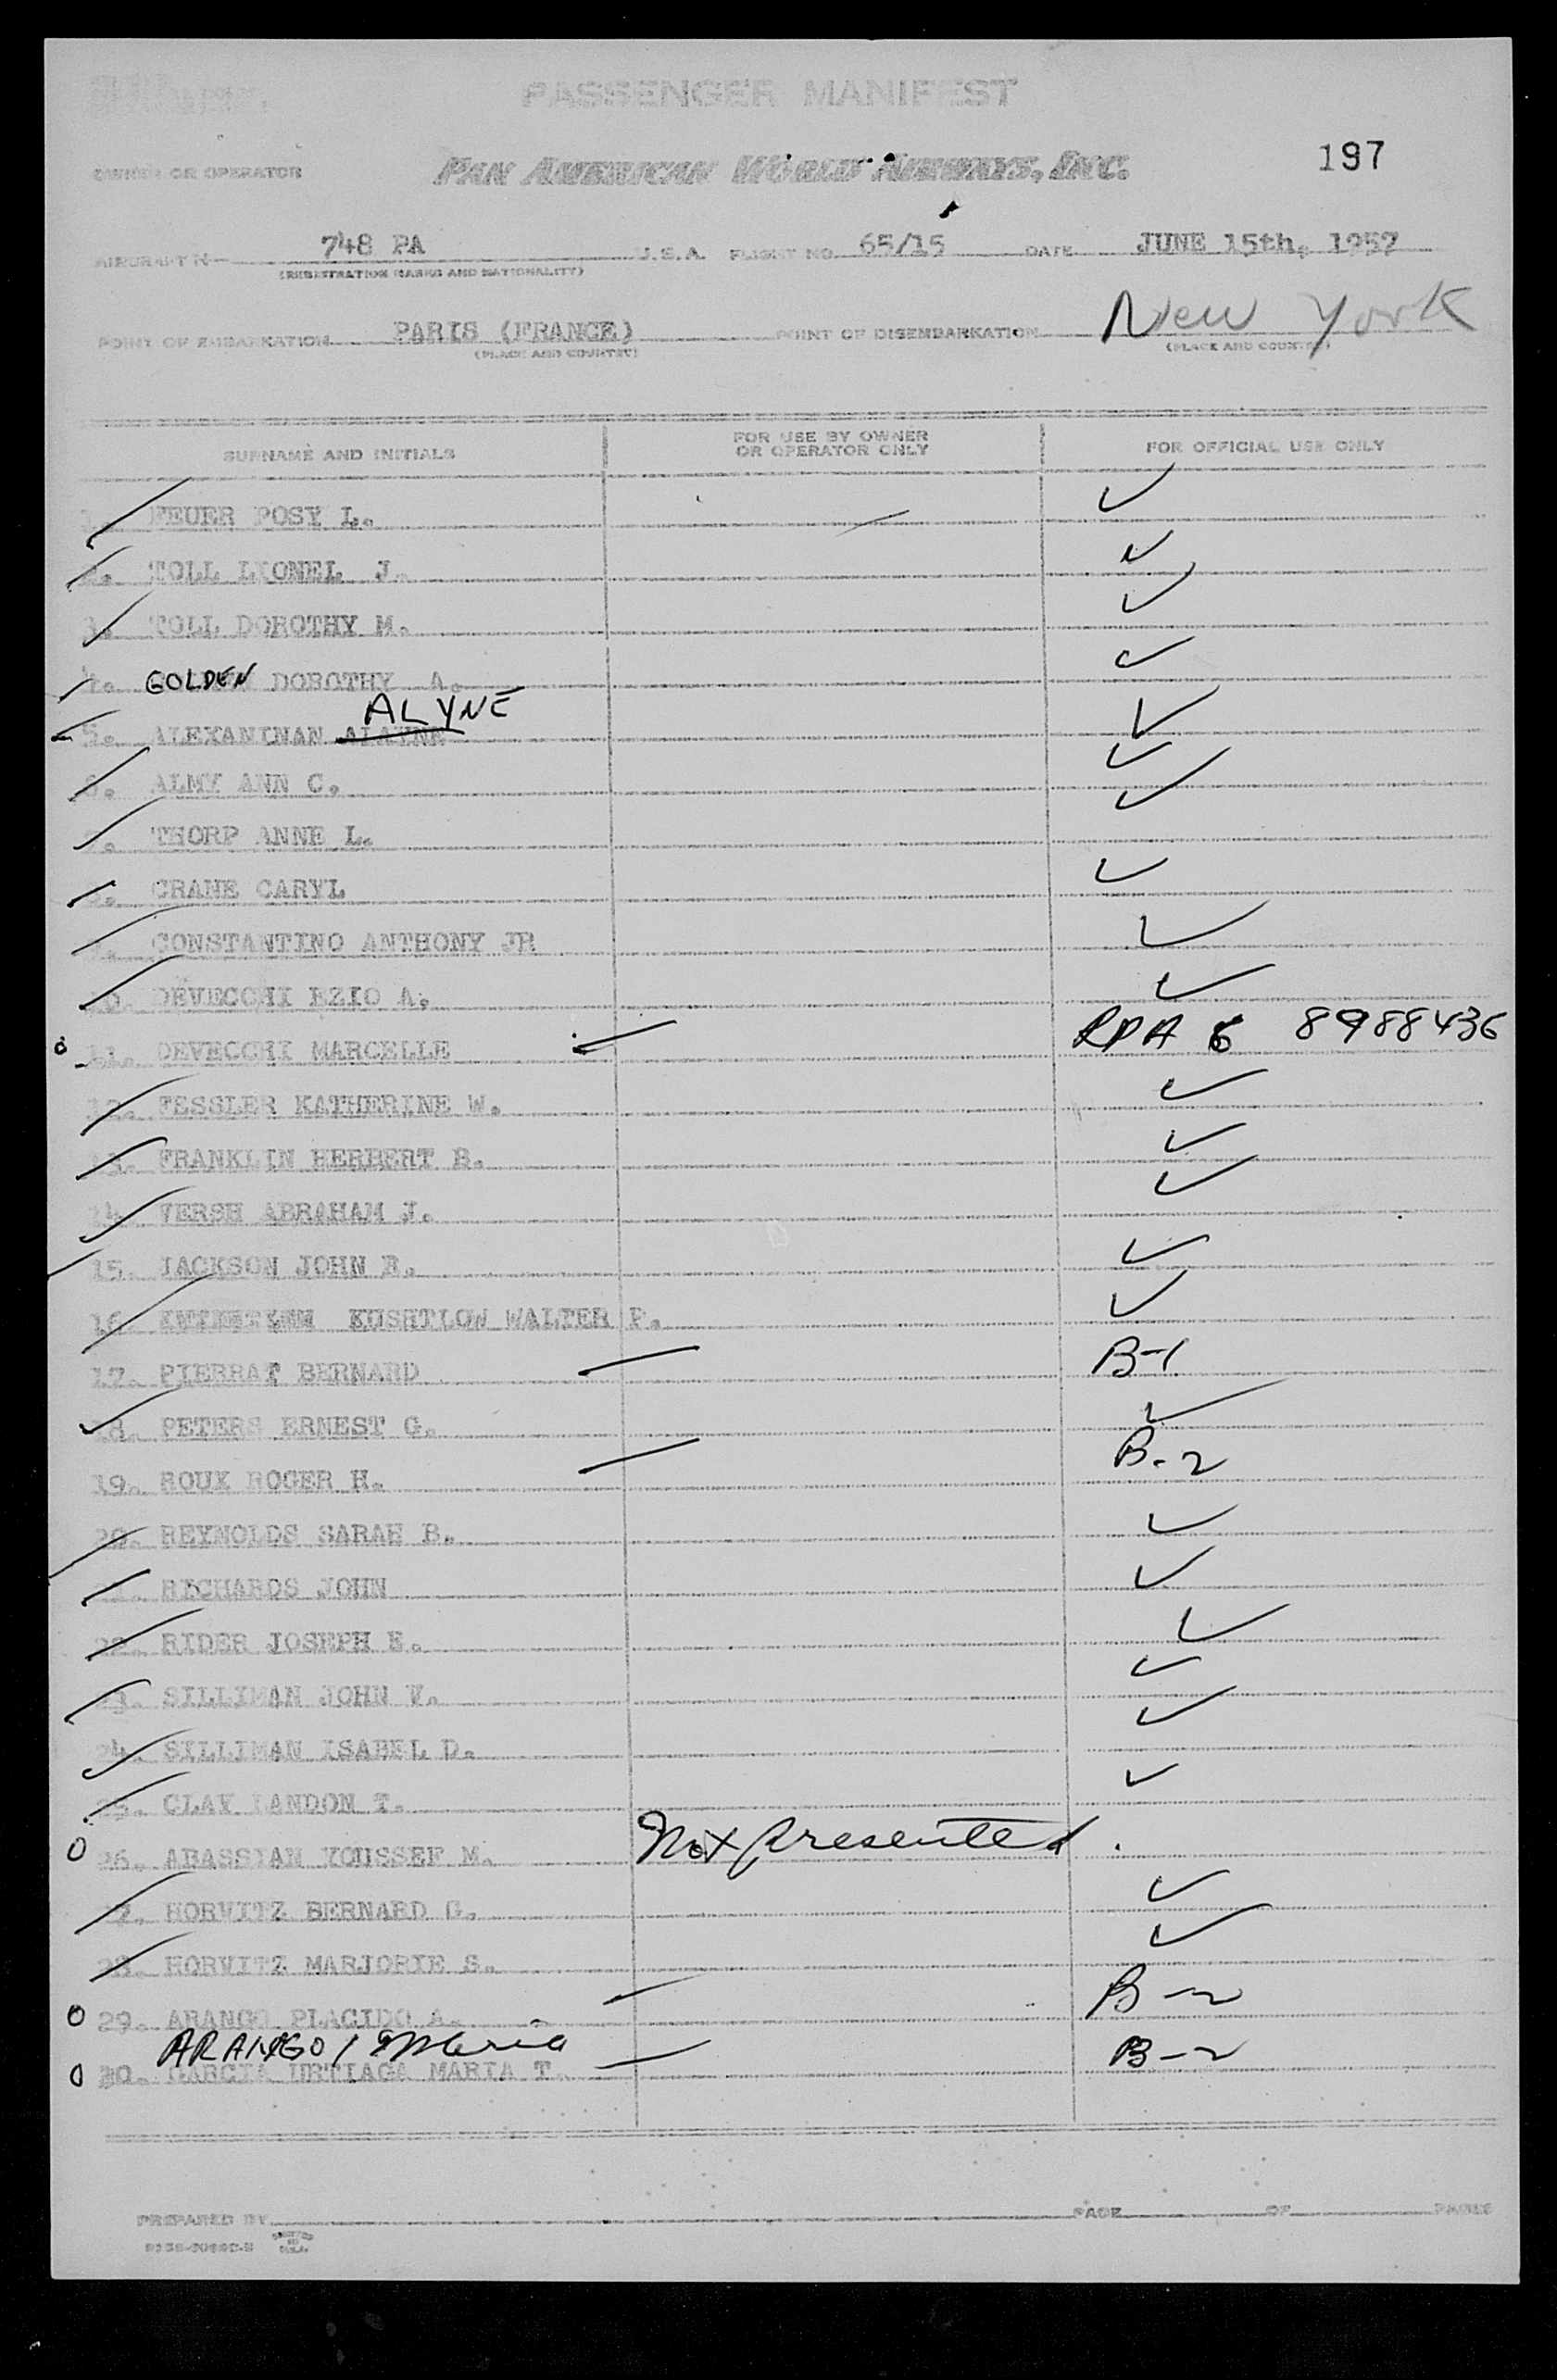 PASSENGER MANIFEST
OWNER OR OPERATOR PAN AMERICAN WORLD AIRWAYS, INC. 197
AIRCRAFT N 748 PA U.S.A. FLIGHT NO. 65/15 DATE JUNE 15th, 1957
(REGISTRATION MARKS AND NATIONALITY)
POINT OF EMBARKATION PARIS (FRANCE) POINT OF DISEMBARKATION New York
(PLACE AND COUNTRY) (PLACE AND COUNTRY)
SURNAME AND INITIALS FOR USE BY OWNER OR OPERATOR ONLY FOR OFFICIAL USE ONLY
1. FEUER POSY L. ✓
2. TOLL LIONEL J. ✓
3. TOLL DOROTHY M. ✓
4. GOLDEN DOROTHY A. ✓
ALYNE
5. ALEXANINAN ALAYNE ✓
6. ALMY ANN C. ✓
7. THORP ANNE L. ✓
8. CRANE CARYL ✓
9. CONSTANTINO ANTHONY JR ✓
10. DEVECCHI EZIO A. ✓
11. DEVECCHI MARCELLE RPA 6 8988436
12. FESSLER KATHERINE W. ✓
13. FRANKLIN HERBERT B. ✓
14. VERSH ABRAHAM J. ✓
15. JACKSON JOHN E. ✓
16. KUSHTLOW WALTER P. ✓
17. PIERRAT BERNARD B-1
18. PETERS ERNEST G. ✓
19. ROUX ROGER H. B-2
20. REYNOLDS SARAH B. ✓
21. RICHARDS JOHN ✓
22. RIDER JOSEPH E. ✓
23. SILLIMAN JOHN V. ✓
24. SILLIMAN ISABEL D. ✓
25. CLAY LANDON T. ✓
0 26. ABASSIAN YOUSSEF M. Not presented
27. HORVITZ BERNARD G. ✓
28. HORVITZ MARJORIE S. ✓
0 29. ARANGO PLACIDO A. B-2
ARANGO / Maria
0 30. GARCIA URTIAGA MARIA T. B-2
PREPARED BY PAGE OF PAGES